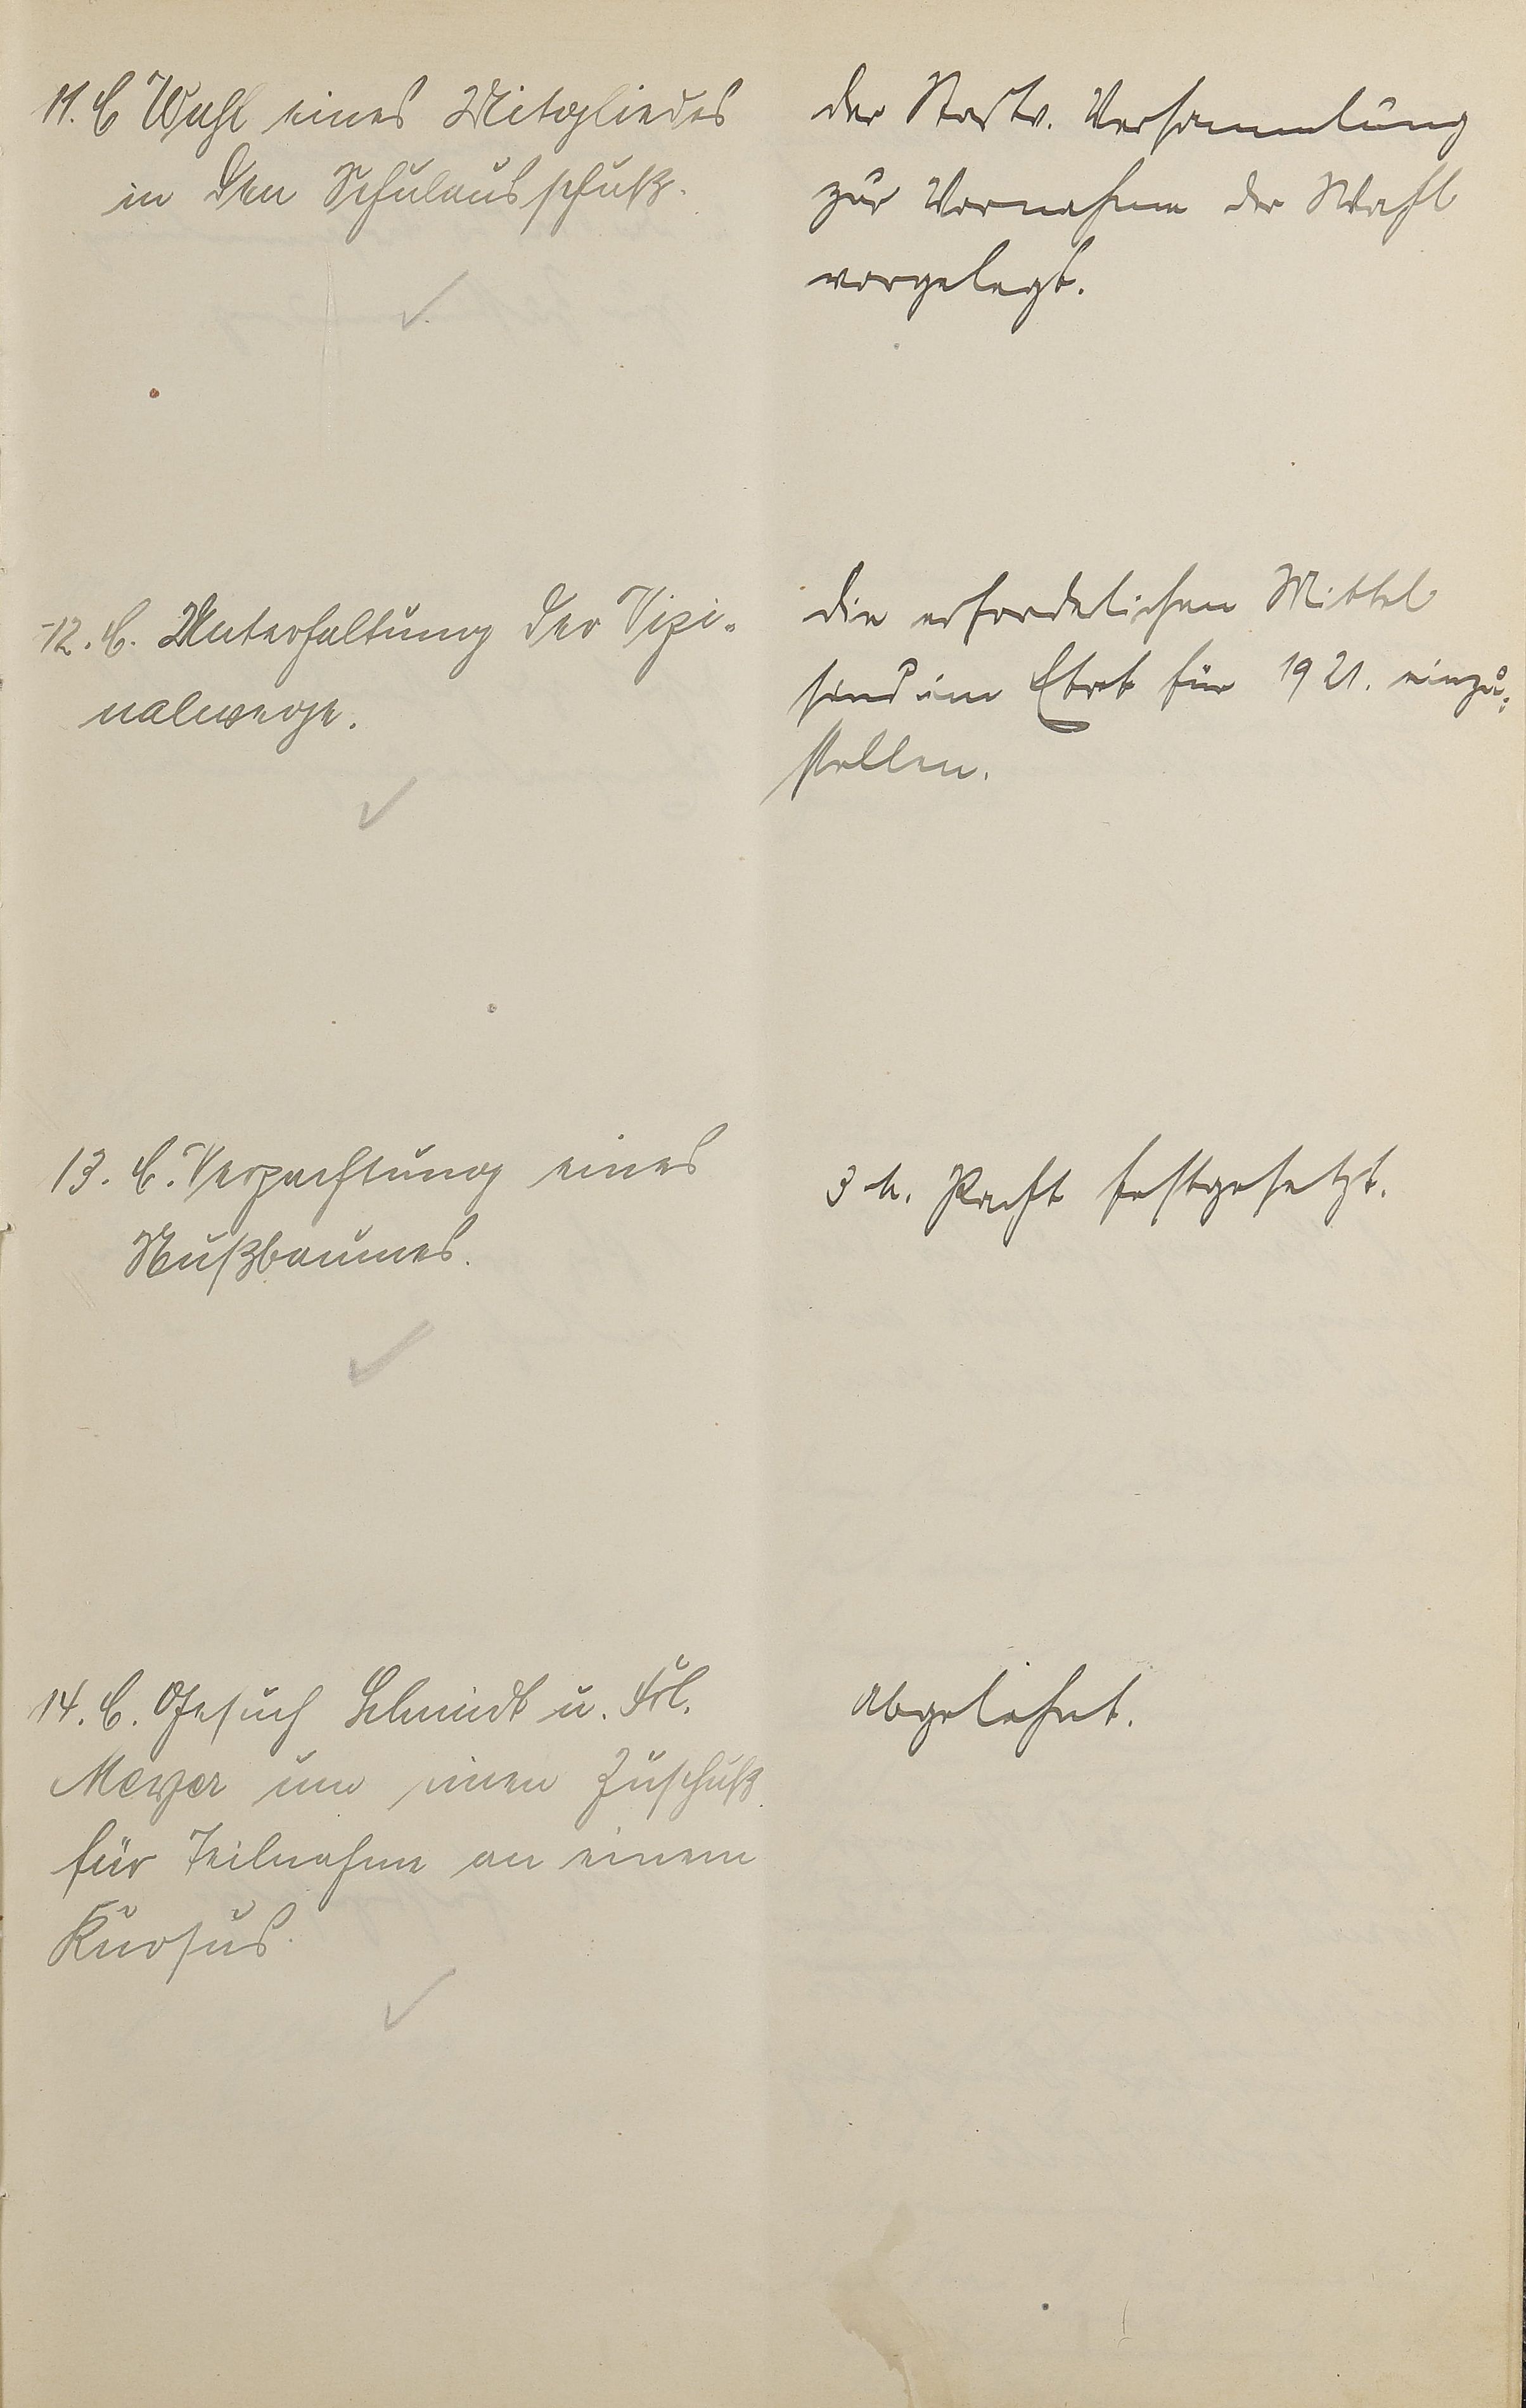 11. C Wahl eines Mitgliedes
in den Schulausschuß.
der Stadtv. Versammlung
zur Vornahme der Wahl
vorgelegt.
12. C. Unterhaltung der Vizi-
nalwege.
die erforderlichen Mittel
sind im Etat für 1921. einzu-
stellen.
13. C. Verpachtung eines
Nußbaumes.
3 M. Pacht festgesetzt.
14. C. Gesuch Schmidt u. Frl.
Meyer um einen Zuschuß
für Teilnahme an einem
Kursus.
abgelehnt.